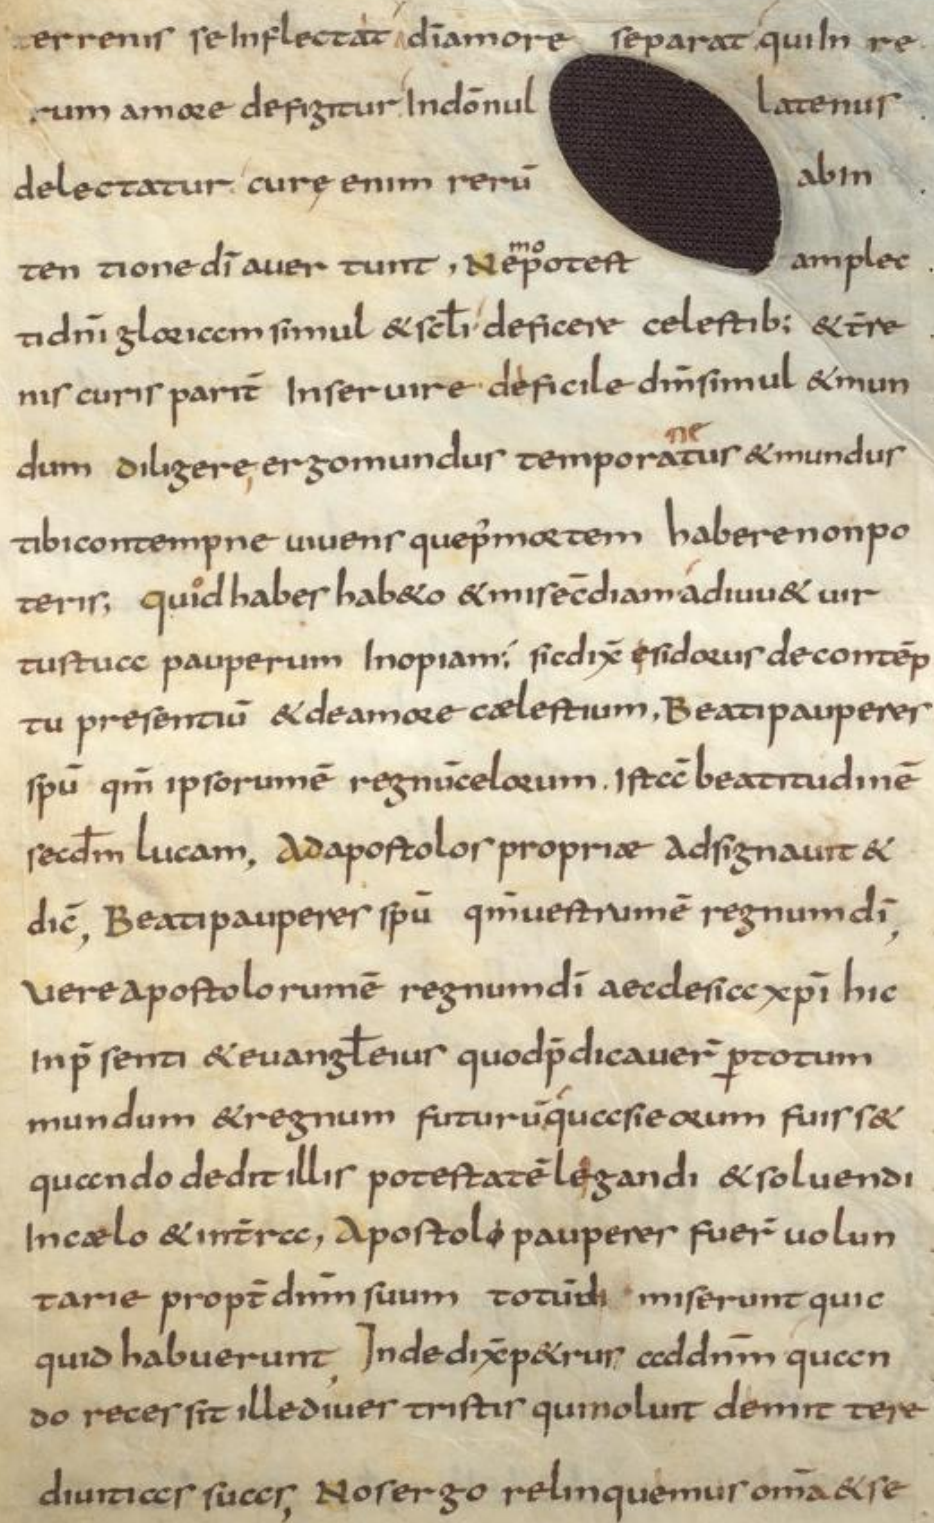 terrenis se Inflectat dīamore separat qui In re
rum amore defigitur Indōnul latenus
delectatur curę enim rerū abin
ten tione dī auer tunt, Nemo potest amplec
ti dn̄i gloriam simul & scłi deficere celestib; & t̄re
nis curis parit̄ Inseruire deficile dm̄ simul & mun
dum diligere, ergo mundus temporatus ne & mundus
tibi contempne uiuens que p̄ mortem habere non po
teris; quod habes hab&o & misec̄diam adiuu& uir
tus tua pauperum Inopiam; sic dix̄ esidorus de contēp
tu presentiū & de amore cælestium, Beati pauperes
spū qm̄ ipsorum ē regnū celorum. Istā beatitudinē
secdm̄ lucam, Ad apostolos propriæ adsignauit &
dic̄, Beati pauperes spū qm̄ uestrum ē regnum dī,
Vere apostolorum ē regnum dī aeclesia xp̄i hic
In p̄senti & euangł eius quod p̄dicauer̄ ꝑ totum
mundum & regnum futurū quasi eorum fuiss&
quando dedit illis potestatē legandi & soluendi
In cælo & in t̄rra, Apostoli pauperes fuer̄ uolun
tarie propt̄ dnm̄ suum totū miserunt quic
quid habuerunt, Inde dix̄ p&rus ad dnm̄ quan
do recessit ille diues tristis qui noluit demit tere
diuitias suas, Nos ergo relinquemus om̄a & se